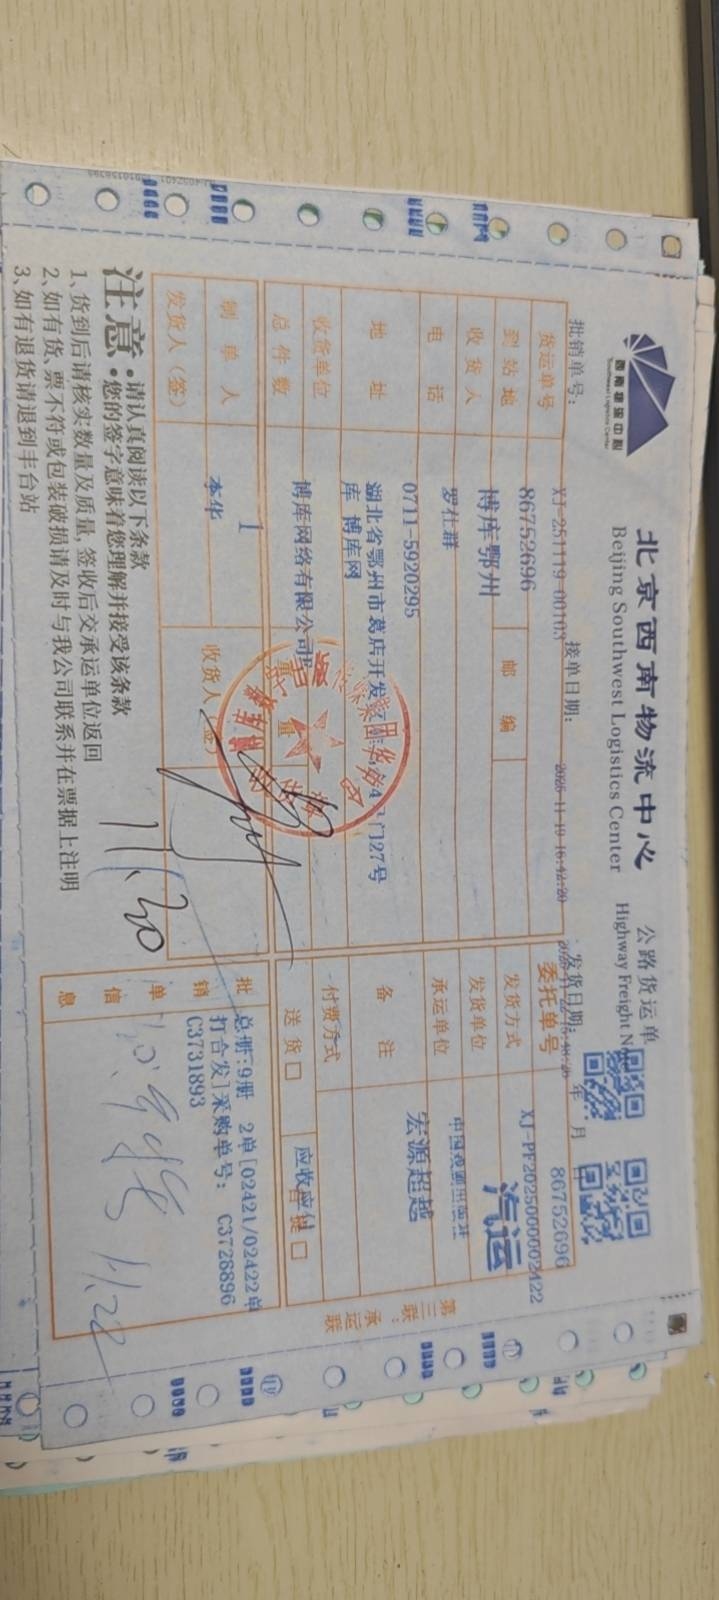 西南物流中心
Southwest Logistics Center
北京西南物流中心
Beijing Southwest Logistics Center
公路货运单
Highway Freight
批销单号：
XJ-251119-00103
接单日期：
2025-11-19 16:42:20
发货日期：
年 月
货运单号
86752696
委托单号
86752696
到站地
博库鄂州
邮编
发货方式
XJ-PF2025000002422
汽运
收货人
罗仕群
发货单位
电话
0711-5920295
承运单位
宏源超越
地址
湖北省鄂州市葛店开发区
门27号
库 博库网
备注
收货单位
博库网络有限公司
付费方式
总件数
1
重量
送货□
应收应付
制单人
本华
发货人（签）
收货人（签）
批销单信息
总册:9册 2单[02421/02422单
打合发]采购单号： C3728896
C3731893
11.30
11.22
第三联：承运联
注意
·请认真阅读以下条款
·您的签字意味着您理解并接受该条款
1、货到后请核实数量及质量, 签收后交承运单位返回
2、如有货、票不符或包装破损请及时与我公司联系并在票据上注明
3、如有退货请退到丰台站